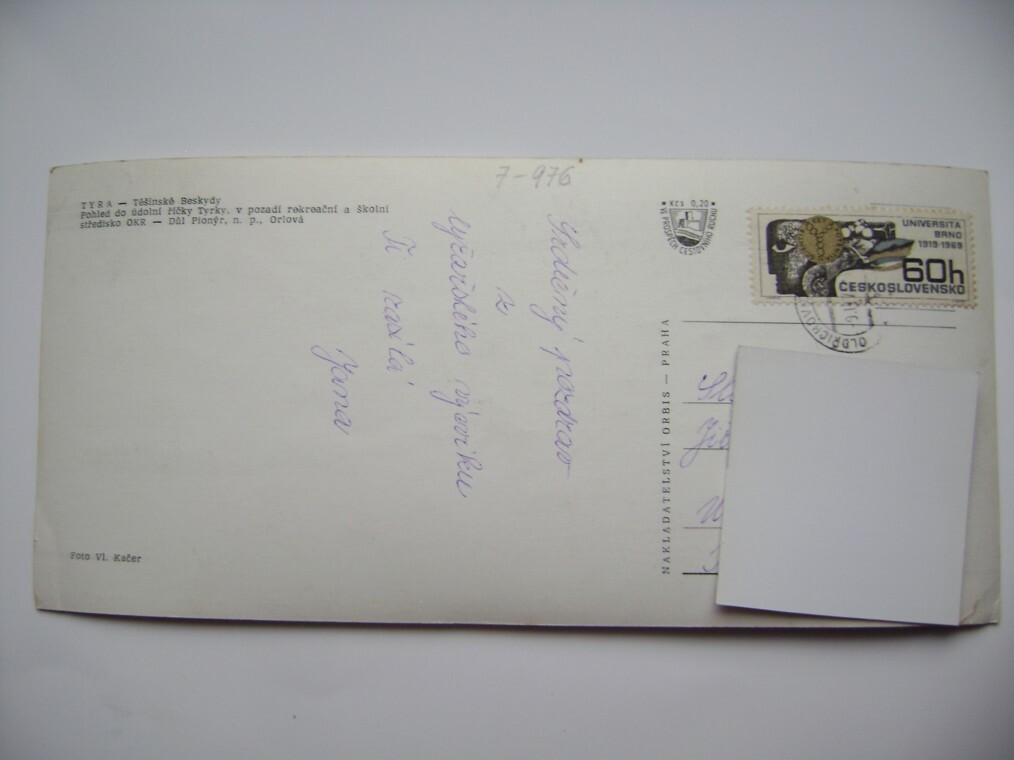 7-976
TYRA — Těšínské Beskydy
Pohled do údolní říčky Tyrky, v pozadí rekreační a školní
středisko OKR — Důl Pionýr, n. p., Orlová
Srdečný pozdrav
z
lyžařského výcviku
Ti zasílá
Jana
Foto Vl. Kačer
Kčs 0,20
VE PROSPĚCH CESTOVNÍHO RUCHU
UNIVERSITA
BRNO
1919-1969
60h
ČESKOSLOVENSKO
NAKLADATELSTVÍ ORBIS — PRAHA